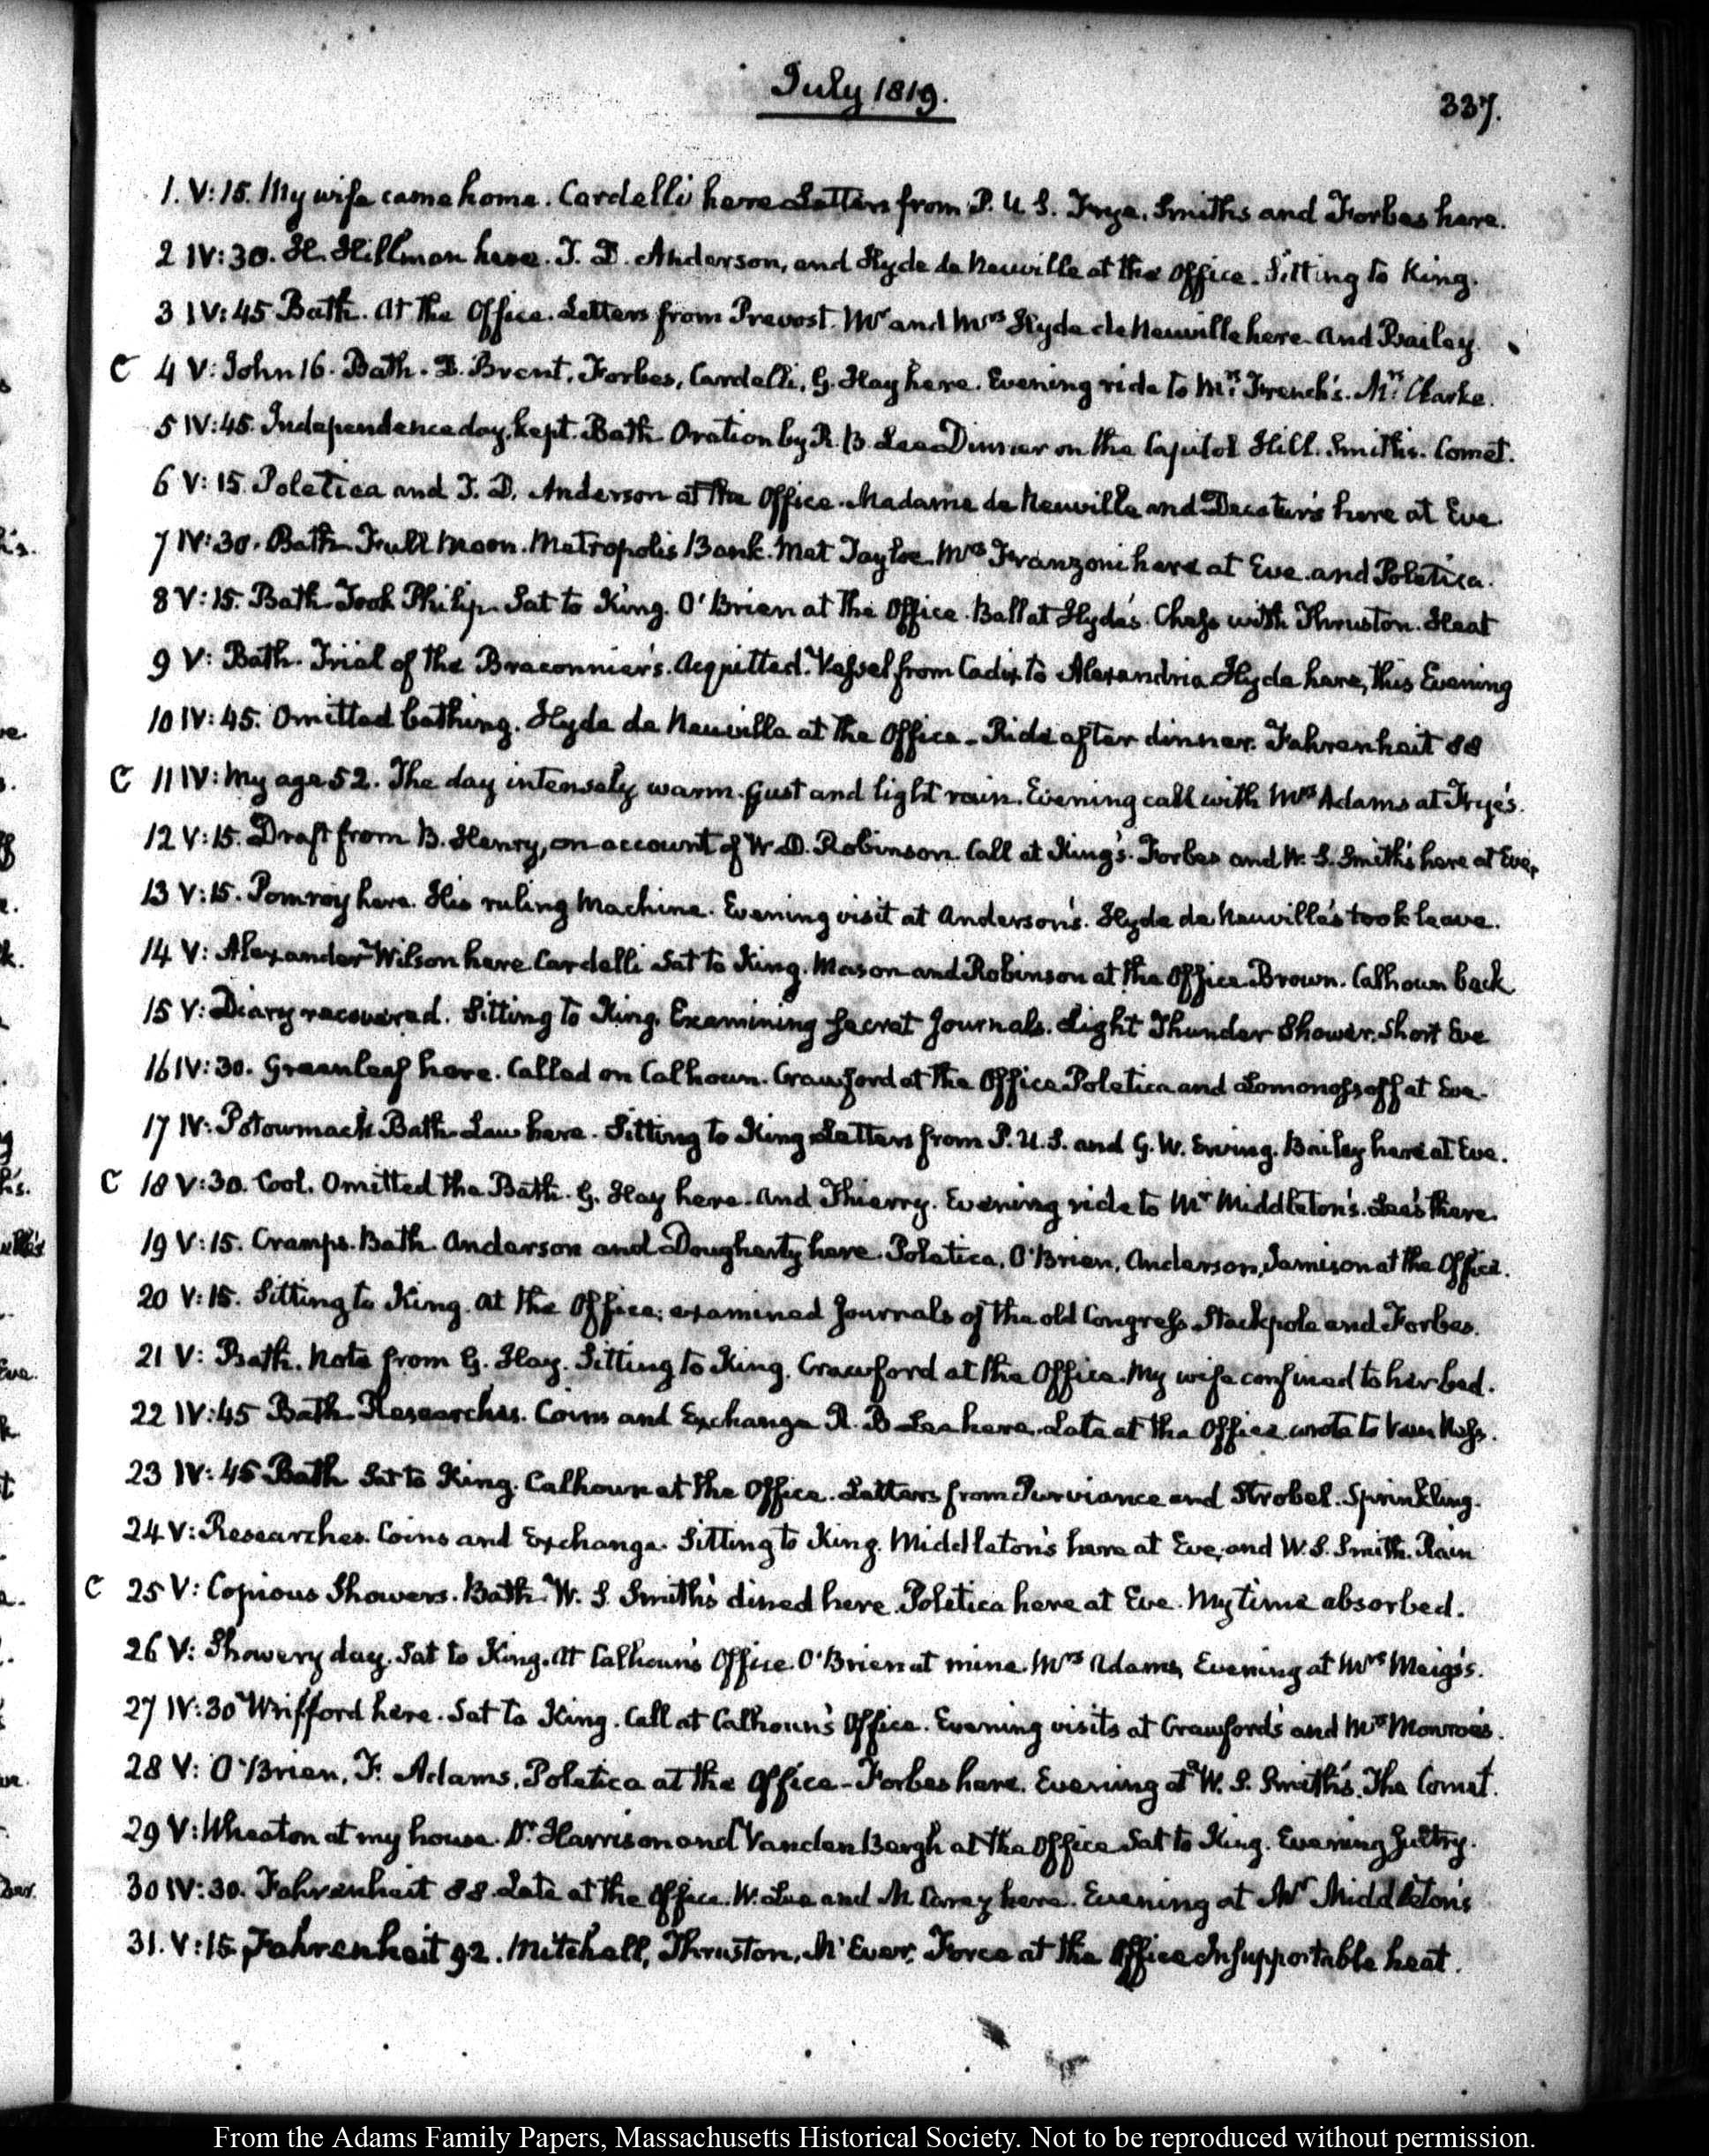 July 1819.
337.
1. V:15. My wife came home. Cardelli here Letters from P. U S. Frye, Smiths and Forbes here.
2 IV:30. H. Hillman here. T. D. Anderson, and Hyde de Neuville at the Office. Sitting to King.
3 IV:45 Bath. At the Office. Letters from Prevost. Mr and Mrs Hyde de Neuville here. And Bailey.
C 4 V: John 16. Bath. D. Brent, Forbes, Cardelli, G. Hay here. Evening ride to Mrs French's. Mrs Clarke.
5 IV:45. Independence day, kept. Bath. Oration by R. B. Lee Dinner on the Capitol Hill. Smiths. Comet.
6 V:15. Poletica and T. D. Anderson at the Office. Madame de Neuville and Decatur's here at Eve.
7 IV:30. Bath Full Moon. Metropolis Bank. Met Tayloe. Mrs Franzoni here at Eve. and Poletica.
8 V:15. Bath Took Philip. Sat to King. O'Brien at the Office. Ball at Hyde's. Chess with Thruston. Heat
9 V: Bath. Trial of the Braconnier's. Acquitted. Vessel from Cadix to Alexandria. Hyde here, this Evening
10 IV:45. Omitted bathing. Hyde de Neuville at the Office - Ride after dinner. Fahrenheit 88
C 11 IV: My age 52. The day intensely warm. Gust and light rain. Evening call with Mrs Adams at Frye's.
12 V:15. Draft from B. Henry, on account of W. D. Robinson. Call at King's. Forbes and W. S. Smith's here at Eve.
13 V:15. Pomroy here. His ruling Machine. Evening visit at Anderson's. Hyde de Neuville's took leave.
14 V: Alexander Wilson here Cardelli Sat to King. Mason and Robinson at the Office. Brown. Calhoun back
15 V: Diary recovered. Sitting to King. Examining Secret Journals. Light Thunder Shower. Short Eve
16 IV:30. Greenleaf here. Called on Calhoun. Crawford at the Office Poletica and Lomonossoff at Eve.
17 IV: Potowmack Bath Law here. Sitting to King Letters from P. U. S. and G. W. Erving. Bailey here at Eve.
C 18 V:30. Cool. Omitted the Bath. G. Hay here. And Thierry. Evening ride to Mr Middleton's. Lee's there.
19 V:15. Cramps. Bath. Anderson and Dougherty here. Poletica, O'Brien, Anderson, Jamison at the Office.
20 V:15. Sitting to King. At the Office; examined Journals of the old Congress Stackpole and Forbes.
21 V: Bath. Note from G. Hay. Sitting to King. Crawford at the Office. My wife confined to her bed.
22 IV:45 Bath Researches. Coins and Exchange R. B Lee here. Late at the Office. wrote to Van Ness.
23 IV:45 Bath Sat to King. Calhoun at the Office. Letters from Purviance and Strobel. Sprinkling.
24 V: Researches. Coins and Exchange. Sitting to King. Middleton's here at Eve, and W. S. Smith. Rain
C 25 V: Copious Showers. Bath. W. S. Smith's dined here. Poletica here at Eve. My time absorbed.
26 V: Showery day. Sat to King. At Calhoun's Office. O'Brien at mine. Mrs Adams, Evening at Mrs Meigs's.
27 IV:30 Wrifford here. Sat to King. Call at Calhoun's Office. Evening visits at Crawford's and Mrs Monroe's.
28 V: O'Brien, F. Adams, Poletica at the Office - Forbes here. Evening at W. S. Smith's. The Comet.
29 V: Wheaton at my house. Dr Harrison and Vanden Bergh at the Office Sat to King. Evening Sultry.
30 IV:30. Fahrenheit 88. Late at the Office. W. Lee and M. Carey here. Evening at Mr Middleton's
31. V:15. Fahrenheit 92. Mitchell, Thruston, Force at the Office Insupportable heat.
From the Adams Family Papers, Massachusetts Historical Society. Not to be reproduced without permission.